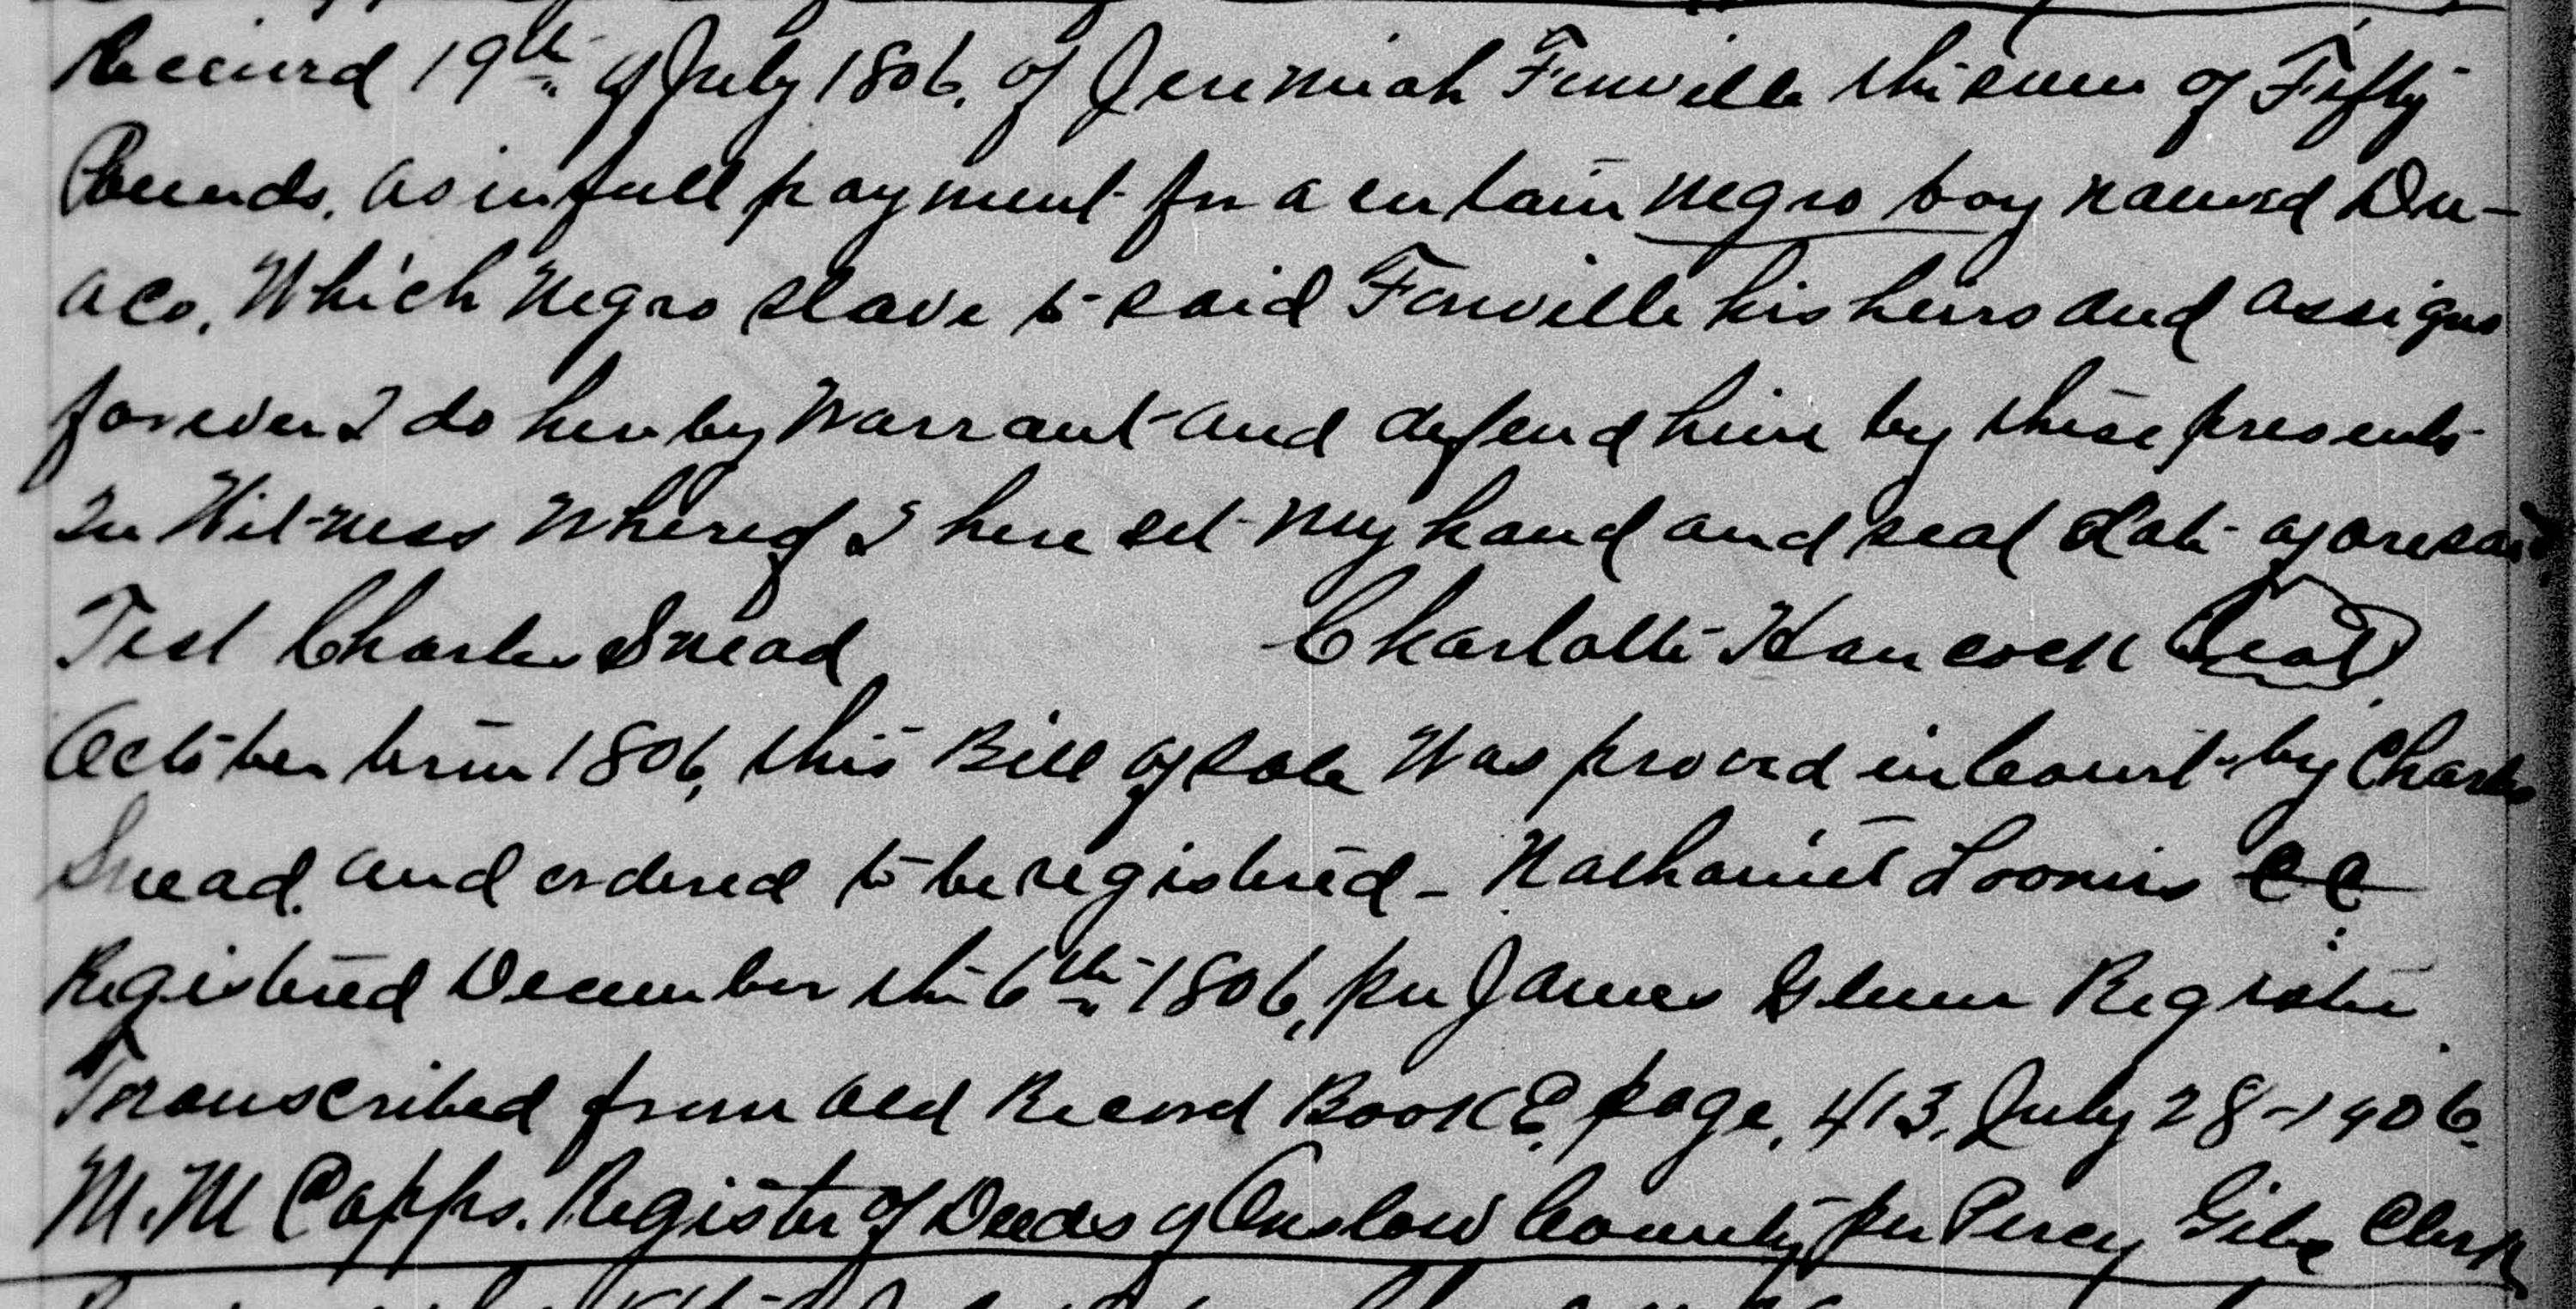 Received 19th of July 1806, of Jeremiah Fonville the sum of Fifty
Pounds, as in full payment for a certain negro boy named Du-
aco, Which Negro slave to said Fonville his heirs and assigns
forever I do hereby Warrant and defend him by these presents
In Witness Whereof I here set my hand and seal date aforesaid
Test Charles Snead Charlotte Hancock Seal
October term 1806, this Bill of sale Was proved in Court by Charles
Snead, and ordered to be registered - Nathaniel Loomis CC
Registered December the 6th 1806, per James Glenn Register
Transcribed from old Record Book E, page, 413, July 28-1906.
M. M Capps. Register of Deeds of Onslow County, per Percy Clerk